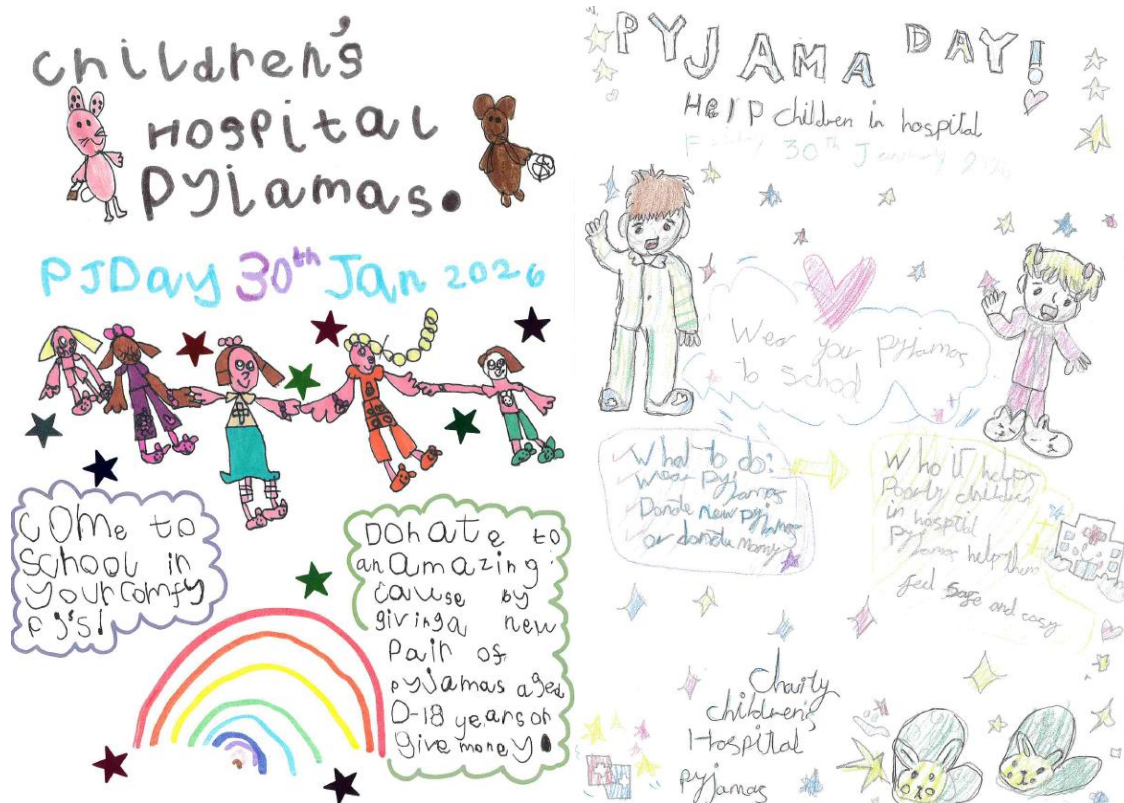 Children's
Hospital
Pyjamas.
PJ Day 30th Jan 2026
Come to
School in
your comfy
PJ's!
Donate to
an amazing
cause by
giving a new
Pair of
pyjamas aged
0-18 years or
give money!
PYJAMA DAY!
Help children in hospital
Friday 30th January 2026
Wear your Pyjamas
to School
What to do:
Wear Pyjamas
Donate new pyjamas
or donate money
Who it helps
Poorly children
in hospital
Pyjamas help them
feel safe and cosy
charity
children's
Hospital
pyjamas